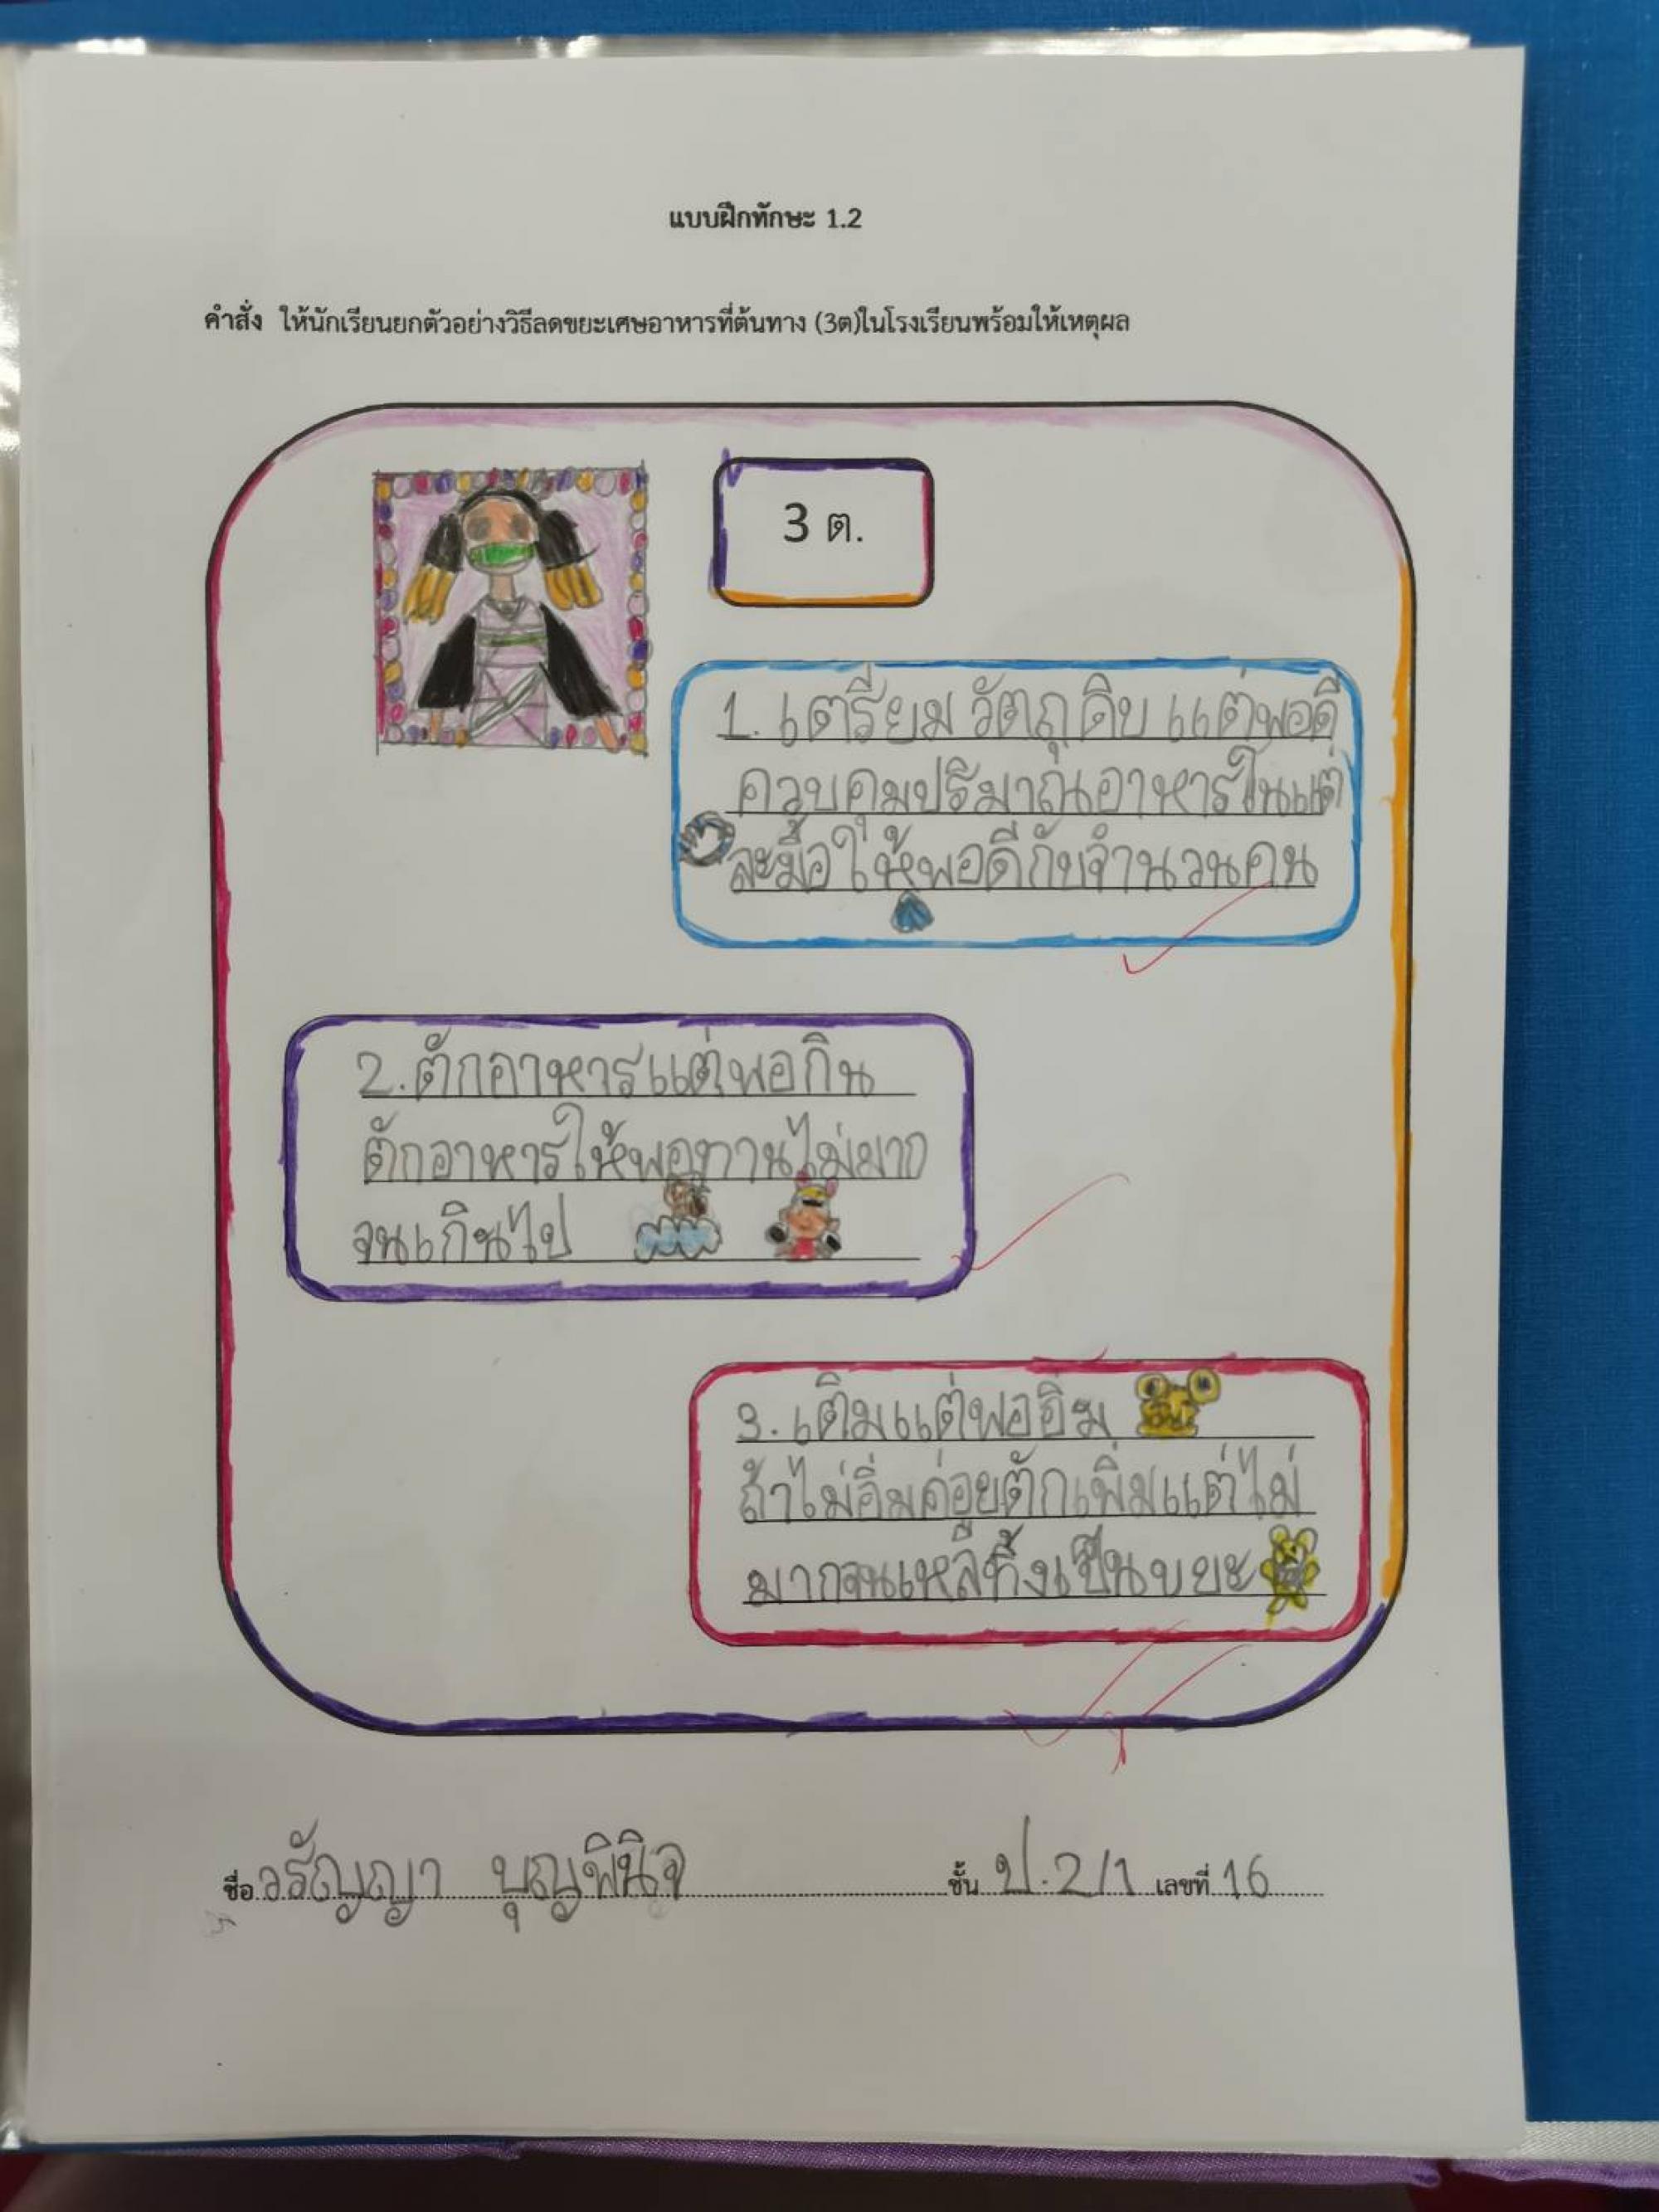 แบบฝึกทักษะ 1.2
คำสั่ง ให้นักเรียนยกตัวอย่างวิธีลดขยะเศษอาหารที่ต้นทาง (3ต)ในโรงเรียนพร้อมให้เหตุผล
3 ต.
1. เตรียมวัตถุดิบแต่พอดี
ควบคุมปริมาณอาหารในแต่
ละมื้อให้พอดีกับจำนวนคน
2. ตักอาหารแต่พอกิน
ตักอาหารให้พอทานไม่มาก
จนเกินไป
3. เติมแต่พออิ่ม
ถ้าไม่อิ่มค่อยตักเพิ่มแต่ไม่
มากจนเหลือทิ้งเป็นขยะ
ชื่อ วรัญญา บุญพินิจ ชั้น ป.2/1 เลขที่ 16